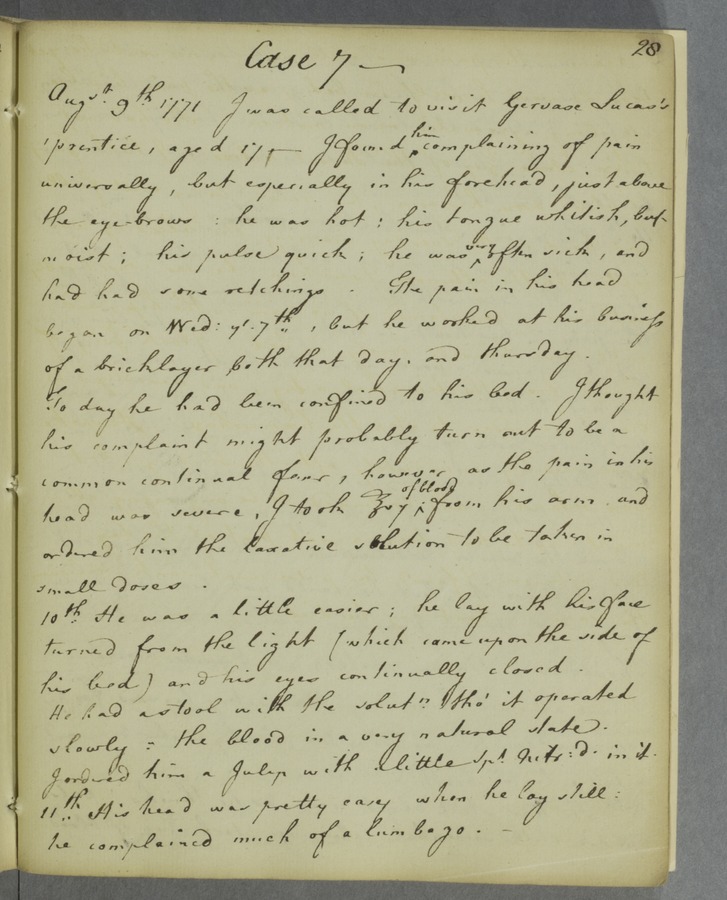 Case 7
28
Augst. 9th 1771 I was called to visit Gervase Lucas's
'prentice, aged 17 — I found him complaining of pain
universally, but especially in his forehead, just above
the eye-brows : he was hot ; his tongue whitish, but
moist ; his pulse quick ; he was very often sick, and
had had some retchings . The pain in his head
began on Wed: ye. 7th , but he worked at his business
of a bricklayer both that day, and thursday .
To day he had been confined to his bed . I thought
his complaint might probably turn out to be a
common continual fever , however as the pain in his
head was severe, I took ℥v7 of blood from his arm and
ordered him the laxative solution to be taken in
small doses .
10th He was a little easier ; he lay with his face
turned from the light (which came upon the side of
his bed) and his eyes continually closed .
He had a stool with the solutn. tho' it operated
slowly : the blood in a very natural state .
I ordered him a Julep with a little Spt. Nitr: d. in it .
11th His head was pretty easy when he lay still :
he complained much of a lumbago . —